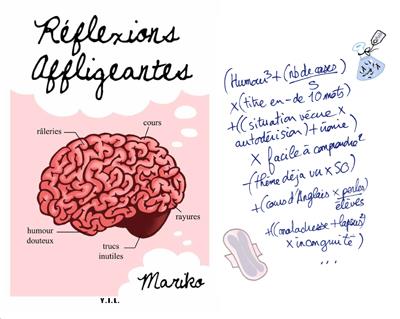 Réflexions
Affligeantes
râleries
cours
rayures
humour
douteux
trucs
inutiles
Mariko
Y.I.L.
(Humour³ + (nb de cases)
5
x (titre en - de 10 mots)
+ ((situation vécue x
autodérision) + ironie)
x facile à comprendre²
- (thème déjà vu x 50)
+ (cours d'Anglais x perles
élèves
+ ((maladresse + lapsus²)
x incongruité)
...